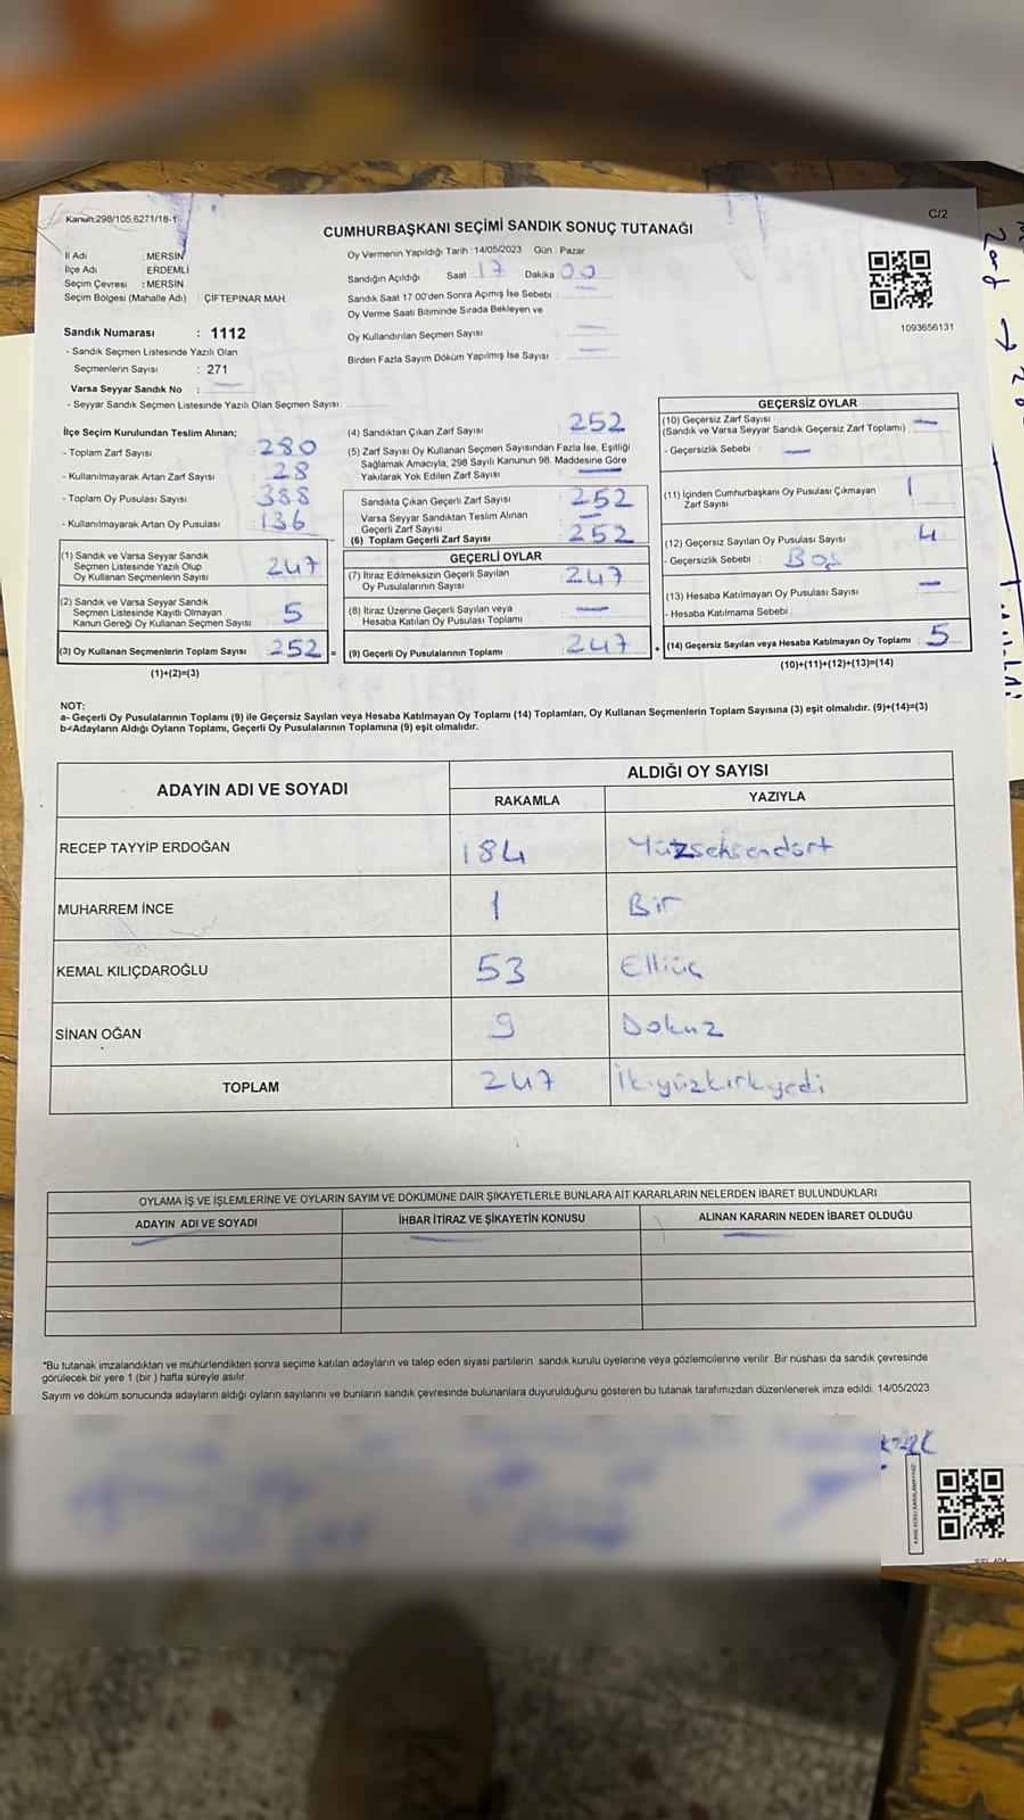 Kanun:298/105,6271/18-1
C/2
CUMHURBAŞKANI SEÇİMİ SANDIK SONUÇ TUTANAĞI
İl Adı : MERSİN
İlçe Adı : ERDEMLİ
Seçim Çevresi : MERSİN
Seçim Bölgesi (Mahalle Adı) : ÇİFTEPINAR MAH.
Sandık Numarası : 1112
- Sandık Seçmen Listesinde Yazılı Olan
Seçmenlerin Sayısı : 271
Varsa Seyyar Sandık No : —
- Seyyar Sandık Seçmen Listesinde Yazılı Olan Seçmen Sayısı:
Oy Vermenin Yapıldığı Tarih :14/05/2023 Gün : Pazar
Sandığın Açıldığı Saat 17 Dakika 00
Sandık Saat 17:00'den Sonra Açımış İse Sebebi —
Oy Verme Saati Bitiminde Sırada Bekleyen ve
Oy Kullandırılan Seçmen Sayısı —
Birden Fazla Sayım Döküm Yapılmış İse Sayısı —
1093656131
İlçe Seçim Kurulundan Teslim Alınan;
- Toplam Zarf Sayısı 280
- Kullanılmayarak Artan Zarf Sayısı 28
- Toplam Oy Pusulası Sayısı 388
- Kullanılmayarak Artan Oy Pusulası 136
(1) Sandık ve Varsa Seyyar Sandık
Seçmen Listesinde Yazılı Olup
Oy Kullanan Seçmenlerin Sayısı 247
(2) Sandık ve Varsa Seyyar Sandık
Seçmen Listesinde Kayıtlı Olmayan
Kanun Gereği Oy Kullanan Seçmen Sayısı 5
(3) Oy Kullanan Seçmenlerin Toplam Sayısı 252 =
(1)+(2)=(3)
(4) Sandıktan Çıkan Zarf Sayısı 252
(5) Zarf Sayısı Oy Kullanan Seçmen Sayısından Fazla İse, Eşitliği
Sağlamak Amacıyla, 298 Sayılı Kanunun 98. Maddesine Göre
Yakılarak Yok Edilen Zarf Sayısı —
Sandıkta Çıkan Geçerli Zarf Sayısı 252
Varsa Seyyar Sandıktan Teslim Alınan
Geçerli Zarf Sayısı —
(6) Toplam Geçerli Zarf Sayısı 252
GEÇERLİ OYLAR
(7) İtiraz Edilmeksizin Geçerli Sayılan
Oy Pusulalarının Sayısı 247
(8) İtiraz Üzerine Geçerli Sayılan veya
Hesaba Katılan Oy Pusulası Toplamı —
(9) Geçerli Oy Pusulalarının Toplamı 247 +
GEÇERSİZ OYLAR
(10) Geçersiz Zarf Sayısı
(Sandık ve Varsa Seyyar Sandık Geçersiz Zarf Toplamı) —
- Geçersizlik Sebebi —
(11) İçinden Cumhurbaşkanı Oy Pusulası Çıkmayan
Zarf Sayısı 1
(12) Geçersiz Sayılan Oy Pusulası Sayısı 4
- Geçersizlik Sebebi : Boş
(13) Hesaba Katılmayan Oy Pusulası Sayısı —
- Hesaba Katılmama Sebebi :
(14) Geçersiz Sayılan veya Hesaba Katılmayan Oy Toplamı 5
(10)+(11)+(12)+(13)=(14)
NOT:
a- Geçerli Oy Pusulalarının Toplamı (9) ile Geçersiz Sayılan veya Hesaba Katılmayan Oy Toplamı (14) Toplamları, Oy Kullanan Seçmenlerin Toplam Sayısına (3) eşit olmalıdır. (9)+(14)=(3)
b-Adayların Aldığı Oyların Toplamı, Geçerli Oy Pusulalarının Toplamına (9) eşit olmalıdır.
ADAYIN ADI VE SOYADI
ALDIĞI OY SAYISI
RAKAMLA YAZIYLA
RECEP TAYYİP ERDOĞAN 184 Yüzseksendört
MUHARREM İNCE 1 Bir
KEMAL KILIÇDAROĞLU 53 Elliüç
SİNAN OĞAN 9 Dokuz
TOPLAM 247 İkiyüzkırkyedi
OYLAMA İŞ VE İŞLEMLERİNE VE OYLARIN SAYIM VE DÖKÜMÜNE DAİR ŞİKAYETLERLE BUNLARA AİT KARARLARIN NELERDEN İBARET BULUNDUKLARI
ADAYIN ADI VE SOYADI İHBAR İTİRAZ VE ŞİKAYETİN KONUSU ALINAN KARARIN NEDEN İBARET OLDUĞU
*Bu tutanak imzalandıktan ve mühürlendikten sonra seçime katılan adayların ve talep eden siyasi partilerin sandık kurulu üyelerine veya gözlemcilerine verilir. Bir nüshası da sandık çevresinde
görülecek bir yere 1 (bir ) hafta süreyle asılır.
Sayım ve döküm sonucunda adayların aldığı oyların sayılarını ve bunların sandık çevresinde bulunanlara duyurulduğunu gösteren bu tutanak tarafımızdan düzenlenerek imza edildi. 14/05/2023